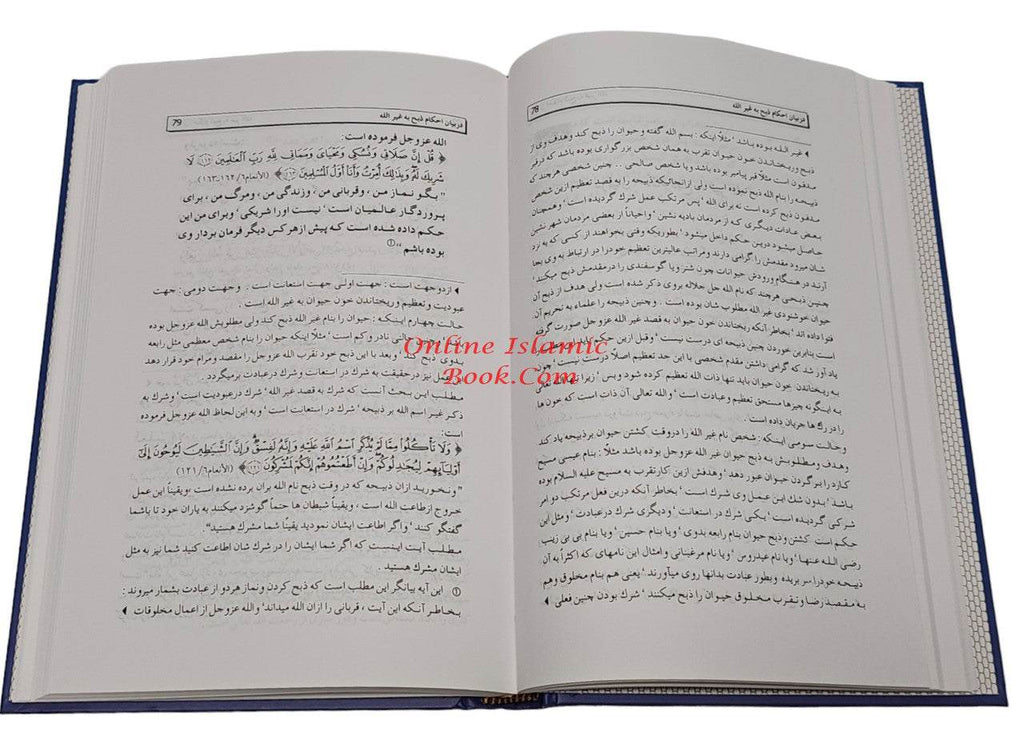 78
دربیان احکام ذبح به غیر الله
غیر اللـه بوده باشد ‘ مثلاً اینکه : بسم الله گفته و حیوان را ذبح کند وهدف وی از
ذبح وریختاندن خون حیوان تقرب به همان شخص بزرگواری بوده باشد که درقبر
مدفون است مثلاً قبر پیامبر بوده باشد ویا شخص صالحی ... چنین شخصی هرچند که
ذبیحه را بنام الله ذبح نموده است ولی ازانجائیکه ذبیحه را به قصد تعظیم ازین شخص
مدفون ذبح کرده است نه برای الله ‘ پس مرتکب عمل شرک گردیده است ‘ وهمچنان
بعـض عادات دیگـری کـه ازمردمان بادیه نشین ‘ واحیاناً از بعضی مردمان شهر نشین
حاصل میشود درین حکم داخل میشود ‘ بطوریکه وقتی بخواهند از کسی که به نزد
شان میرود مقدمش را گرامی دارند ومراتب عالیترین تعظیم خودرا در ارتباط به وی بجا
آرند در هنگام ورودش حیوانات چون شتر ویا گوسفندی را درمقدمش ذبح میکنند ‘
چنین ذبحی هرچند که نام الله جل جلاله بروی ذکر شده است ولی هدف از ذبح آن
حیوان خوشنودی غیر الله مطلوب شان بوده است . وچنین ذبیحه را علماء به تحریم آن
فتوا داده اند ‘ بخاطر آنکه ریختاندن خون حیوان به قصد غیر الله عزوجل صورت گرفته
است بنابرین خوردن چنین ذبیحه ای درست نیست ‘ وقبل ازین
یاد آور شد که گرامی داشتن مقدم شخصی با این حد تعظیم اصلاً درست نیست ‘ چون
بـه ریختاندن خون حیوان باید تنها ذات الله تعظیم کرده شود وبس ‘ زیرا
بـه اینگونه چیزها مستحق تعظیم وعبادت است ‘ والله تعالی آن ذات است که خون ها
را در رگ ها جریان داده است .
وحالت سومی اینکه : شخص نام غیر الله را دروقت کشتن حیوان برذبیحه یاد کند
وهدف ومطلوبـش بـه ذبح حیوان غیر الله عزوجل بوده باشد مثلاً : بنام عیسی مسیح
کارد را بـر گـردن حیوان عبور دهد ‘ وهدفش ازین کارتقرب به مسیح علیه السلام بوده
باشد ‘ بدون شک این عمـل وی شرک است ‘ بخاطر آنکه درین فعل مرتکب دو امر
شرکی گردیـده است ‘ یکـی شرک در استعانت ‘ ودیگری شرک درعبادت ‘ ومثل این
حکم است کشتن وذبح حیوان بنام رابعه بدوی ‘ ویا بنام حسین ‘ ویا بنام بی بی زینب
رضی اللـه عنهـا ‘ ویا نام عیدروس ‘ ویا نام مرغینانی وامثال این نامهای که اکثراً به آن
ذبیحه خودرا سر بریده وبطور عبادت بدانها روی میآورند ‘ یعنی هم بنام مخلوق وهم
بـه مقـصد رضا وتقـرب مخـلوق حیـوان را ذبح میکنند ‘ شرک بودن چنین فعلی
79
دربیان احکام ذبح به غیر الله
الله عزوجل فرموده است :
﴿ قُلْ إِنَّ صَلَاتِي وَنُسُكِي وَمَحْيَايَ وَمَمَاتِي لِلَّهِ رَبِّ الْعَالَمِينَ ﴿١٦٢﴾ لَا
شَرِيكَ لَهُ وَبِذَلِكَ أُمِرْتُ وَأَنَا أَوَّلُ الْمُسْلِمِينَ ﴿١٦٣﴾ ﴾ (الأنعام/٦ ١٦٢، ١٦٣)
“ بگو نماز من ، وقربانی من ، وزندگی من ، ومرگ من ، برای
پروردگار عالمیان است ‘ نیست اورا شریکی ‘ وبرای من این
حکم داده شده است که پیش ازهرکس دیگر فرمان بردار وی
بوده باشم ” ①
ازدوجهت است : جهت اولـی جهت استعانت است . وجهت دومی : جهت
عبودیت و تعظیم وریختاندن خون حیوان به غیر الله است .
حـالت چهـارم اینکـه : حیوان را بنام غیر الله ذبح کند ولی مطلوبش الله عزوجل بوده
نادر وکم است ‘ مثلاً اینکه حیوان را بنام شخص معظمی مثل رابعه
بدوی ذبح کند ‘ وبعد با این ذبح خود تقرب الله عزوجل را مقصد ومرام خود قرار دهد
نیز درحقیقت به شرک در استعانت وشرک درعبادت برمیگردد .
مطلـب این بـحث آنست که شرک به قصد غیر الله ‘ شرک درعبودیت است ‘ وشرک به
ذکـر غیـر اسم الله بر ذبیحه ‘ شرک در استعانت است ‘ وبه این لحاظ الله عزوجل فرموده
است :
﴿ وَلَا تَأْكُلُوا مِمَّا لَمْ يُذْكَرِ اسْمُ اللَّهِ عَلَيْهِ وَإِنَّهُ لَفِسْقٌ وَإِنَّ الشَّيَاطِينَ لَيُوحُونَ إِلَى
أَوْلِيَائِهِمْ لِيُجَادِلُوكُمْ وَإِنْ أَطَعْتُمُوهُمْ إِنَّكُمْ لَمُشْرِكُونَ ﴿١٢١﴾ ﴾ (الأنعام/٦ ١٢١)
“ ونـخوریـد ازان ذبیحه که دروقت ذبح نام الله بران برده نشده است ،ویقیناً این عمل
خروج ازطاعت الله است ، ویقیناً شیطان ها حتماً گوشزد میکنند به یاران خود تا باشما
گفتگو کنند ‘ واگر اطاعت ایشان نمودید یقیناً شما مشرک هستید”.
مطـلب آیـت اینـست که اگر شما ایشان را در شرک شان اطاعت کنید شما نیز به مثل
ایشان مشرک هستید .
① این آیه بیانگر این مطلب است که ذبح کردن ونماز هردو از عبادت بشمار میروند :
بـخاطـر آنـکه این آیت ، قربانی را ازان الله میداند‘ والله عزوجل از اعمال مخلوقات
Online Islamic
Book.Com